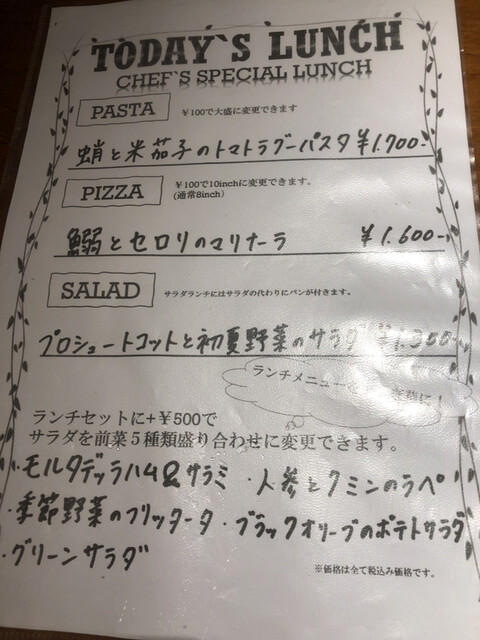 TODAY`S LUNCH
CHEF`S SPECIAL LUNCH
PASTA ￥100で大盛に変更できます
蛸と米茄子のトマトラグーパスタ ¥1.700-
PIZZA ￥100で10inchに変更できます。
(通常8inch)
鰯とセロリのマリナーラ ¥1.600-
SALAD サラダランチにはサラダの代わりにパンが付きます。
プロシュートコットと初夏野菜のサラダ ¥1.300-
ランチメニュー
ランチセットに+￥500で
サラダを前菜５種類盛り合わせに変更できます。
・モルタデッラハム&サラミ ・人参とクミンのラペ
・季節野菜のフリッタータ ・ブラックオリーブのポテトサラダ
・グリーンサラダ
※価格は全て税込み価格です。